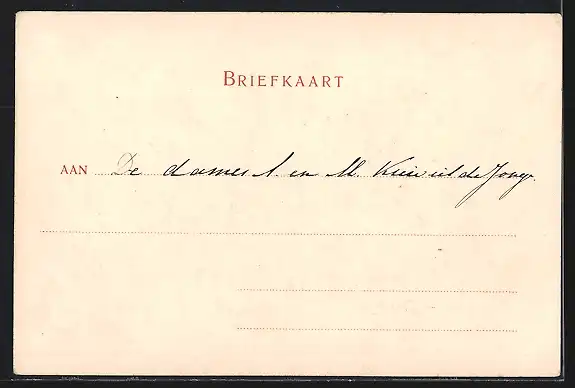 BRIEFKAART
AAN De dames A. en M. Kieviet de Jonge.